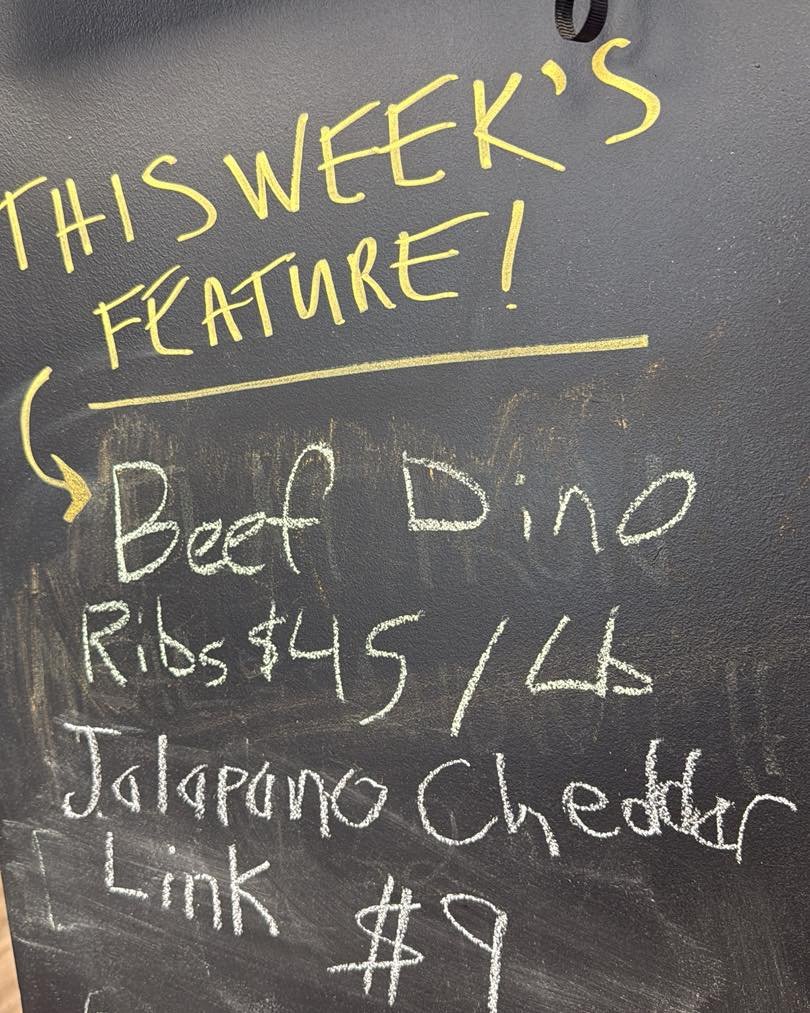 THIS WEEK'S
FEATURE!
Beef Dino
Ribs $45/Lb
Jalapano Cheddar
Link $9